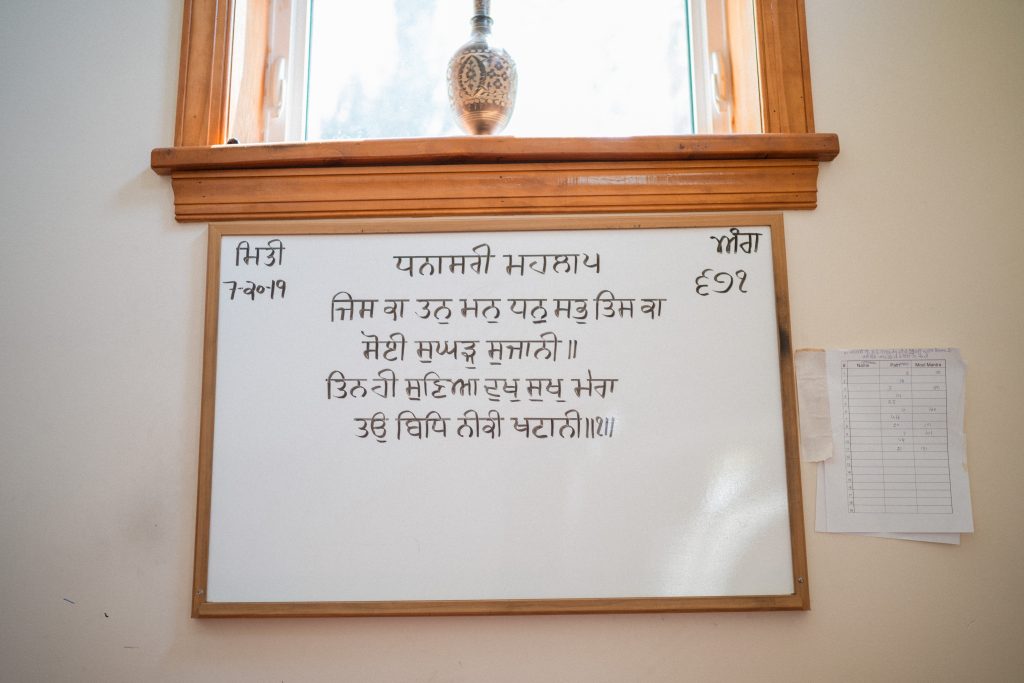 ਮਿਤੀ
7-20-19
ਧਨਾਸਰੀ ਮਹਲਾ ੫
ਅੰਗ
੬੭੧
ਜਿਸ ਕਾ ਤਨੁ ਮਨੁ ਧਨੁ ਸਭੁ ਤਿਸ ਕਾ
ਸੋਈ ਸੁਘੜੁ ਸੁਜਾਨੀ ॥
ਤਿਨ ਹੀ ਸੁਣਿਆ ਦੁਖੁ ਸੁਖੁ ਮੇਰਾ
ਤਉ ਬਿਧਿ ਨੀਕੀ ਖਟਾਨੀ॥੧॥
# Name Patri Mool Mantra